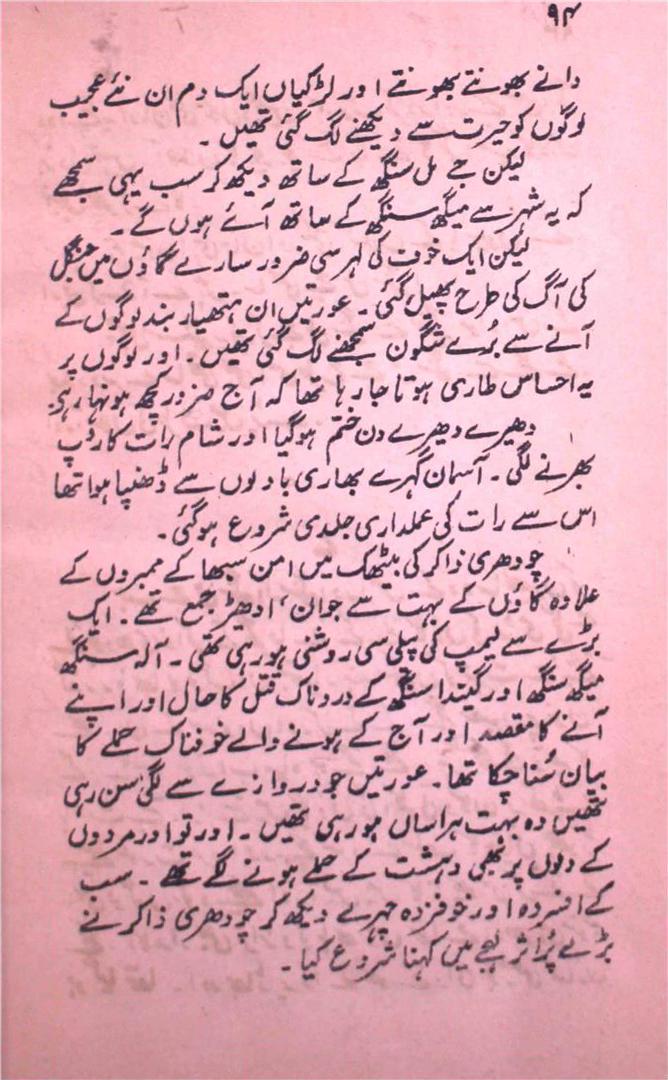 ۹۴
دانے بھونتے بھونتے اور لڑکیاں ایک دم ان نئے عجیب
لوگوں کو حیرت سے دیکھنے لگ گئی تھیں ۔
لیکن جے مل سنگھ کے ساتھ دیکھ کر سب یہی سمجھے
کہ یہ شہر سے میگھ سنگھ کے ساتھ آئے ہوں گے ۔
لیکن ایک خوف کی لہر سی ضرور سارے گاؤں میں جنگل
کی آگ کی طرح پھیل گئی ۔ عورتیں ان ہتھیار بند لوگوں کے
آنے سے بُرے شگون سمجھنے لگ گئی تھیں ۔ اور لوگوں پر
یہ احساس طاری ہوتا جا رہا تھا کہ آج ضرور کچھ ہونہار ہے۔
دھیرے دھیرے دن ختم ہوگیا اور شام رات کا روپ
بھرنے لگی ۔ آسمان گہرے بھاری بادلوں سے ڈھنپا ہوا تھا
اس سے رات کی عملداری جلدی شروع ہوگئی ۔
چودھری ذاکر کی بیٹھک میں امن سبھا کے ممبروں کے
علاوہ گاؤں کے بہت سے جوان ، ادھیڑ جمع تھے ۔ ایک
بڑے سے لیمپ کی پیلی سی روشنی ہو رہی تھی ۔ آلہ سنگھ
میگھ سنگھ اور گیندا سنگھ کے دردناک قتل کا حال اور اپنے
آنے کا مقصد اور آج کے ہونے والے خوفناک حملے کا
بیان سُنا چکا تھا ۔ عورتیں جو دروازے سے لگی سن رہی
تھیں وہ بہت ہراساں ہو رہی تھیں ۔ اور تو اور مردوں
کے دلوں پر بھی دہشت کے حملے ہونے لگے تھے ۔ سب
کے افسردہ اور خوفزدہ چہرے دیکھ کر چودھری ذاکر نے
بڑے پُراثر لہجے میں کہنا شروع کیا ۔